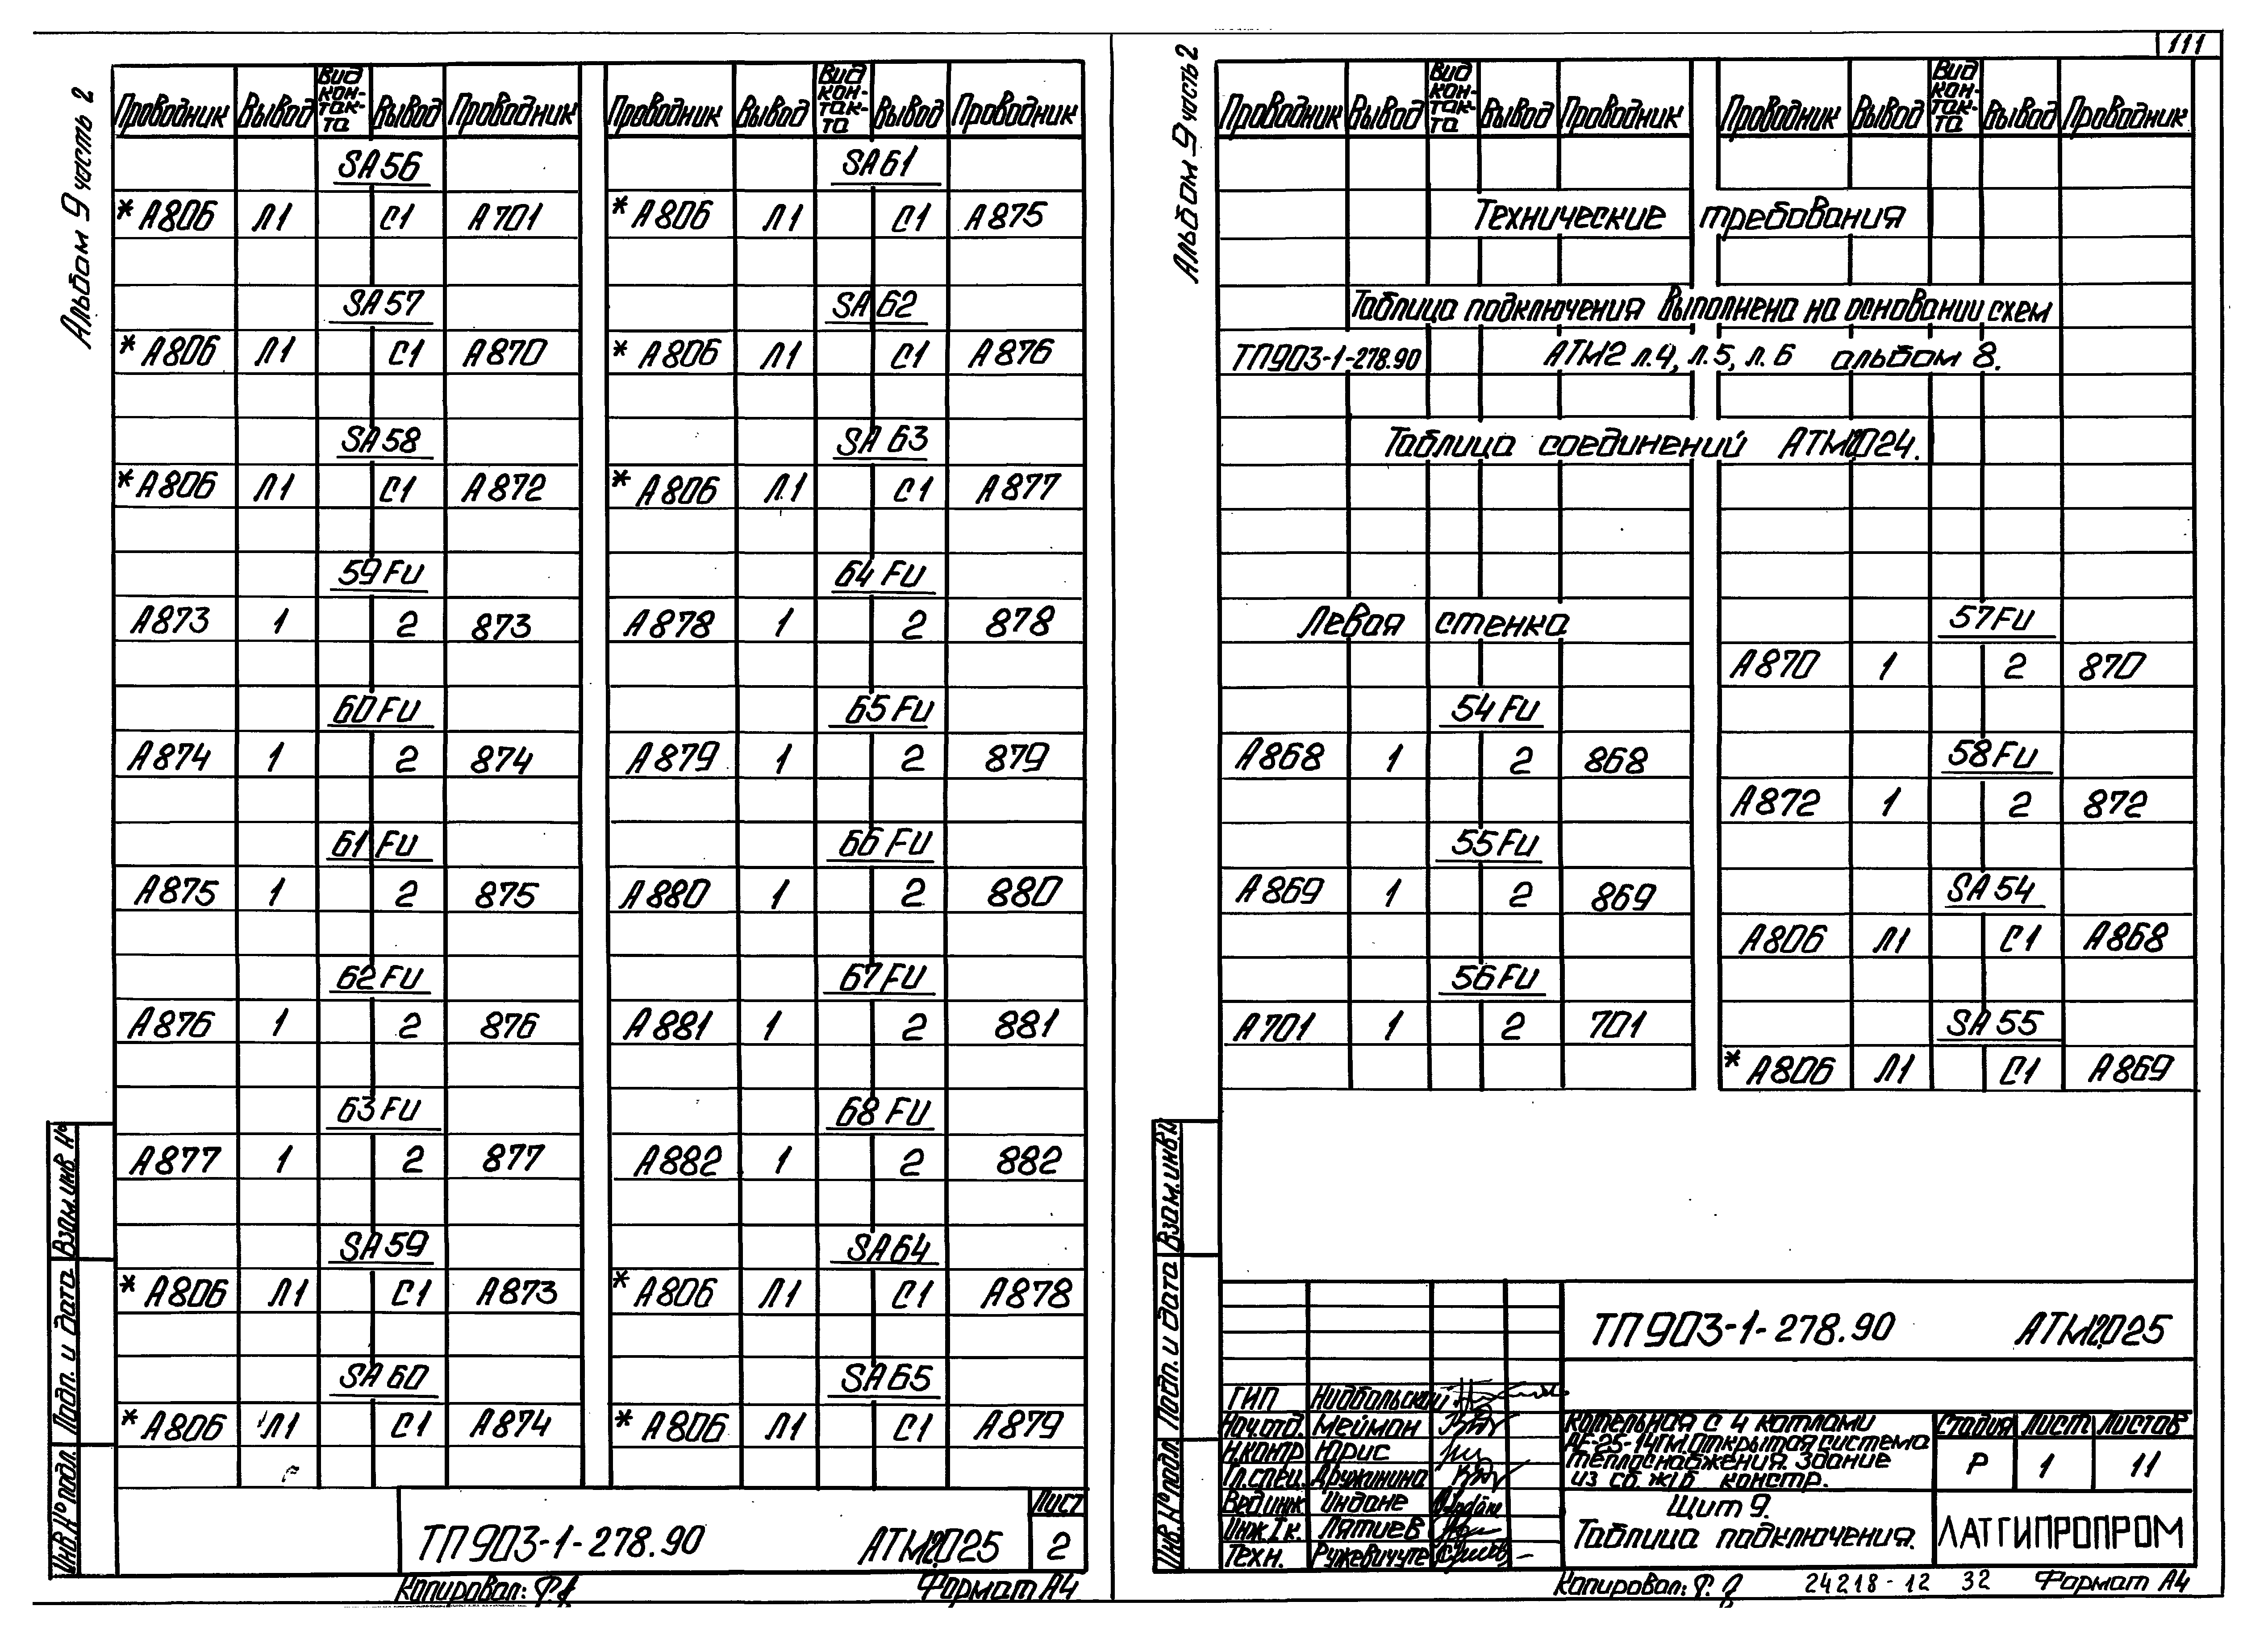 Альбом 9 часть 2
Проводник Вывод Вид контакта Вывод Проводник
SA56
*А806 Л1 С1 А701
SA57
*А806 Л1 С1 А870
SA58
*А806 Л1 С1 А872
59FU
А873 1 2 873
60FU
А874 1 2 874
61FU
А875 1 2 875
62FU
А876 1 2 876
63FU
А877 1 2 877
SA59
*А806 Л1 С1 А873
SA60
*А806 Л1 С1 А874
Проводник Вывод Вид контакта Вывод Проводник
SA61
*А806 Л1 С1 А875
SA62
*А806 Л1 С1 А876
SA63
*А806 Л1 С1 А877
64FU
А878 1 2 878
65FU
А879 1 2 879
66FU
А880 1 2 880
67FU
А881 1 2 881
68FU
А882 1 2 882
SA64
*А806 Л1 С1 А878
SA65
*А806 Л1 С1 А879
Взам.инв.N°
Подп. и дата
Инв.N°подл.
ТП903-1-278.90 АТМ2.025
Лист
2
Копировал:
Формат А4
111
Альбом 9 часть 2
Проводник Вывод Вид контакта Вывод Проводник
Проводник Вывод Вид контакта Вывод Проводник
Технические требования
Таблица подключения выполнена на основании схем
ТП903-1-278.90 АТМ2 л.4, л.5, л.6 альбом 8.
Таблица соединений АТМ2.024.
Левая стенка
54FU
А868 1 2 868
55FU
А869 1 2 869
56FU
А701 1 2 701
57FU
А870 1 2 870
58FU
А872 1 2 872
SA54
А806 Л1 С1 А868
SA55
*А806 Л1 С1 А869
Взам.инв.N
Подп. и дата
Инв.N°подл.
ТП903-1-278.90 АТМ2.025
ГИП
Нач.отд. Мейман
Н.контр Юрис
Гл.спец. Дружинина
Вед.инж Индане
Инж.Iк. Лятиев
Техн. Ружевичуте
Котельная с 4 котлами
ДЕ-25-14ГМ.Открытая система
теплоснабжения. Здание
из сб. ж/б. констр.
Стадия Лист Листов
Р 1 11
Щит 9.
Таблица подключения.
ЛАТГИПРОПРОМ
Копировал:
24218-12 32
Формат А4